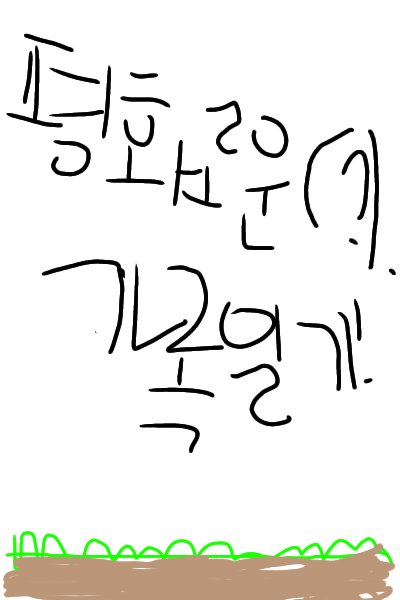 평화로운(?).
가족일기.